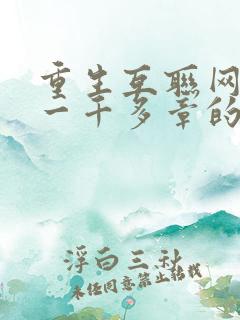 重生互联网
一千多章的
浮白三秋
未经同意禁止转载